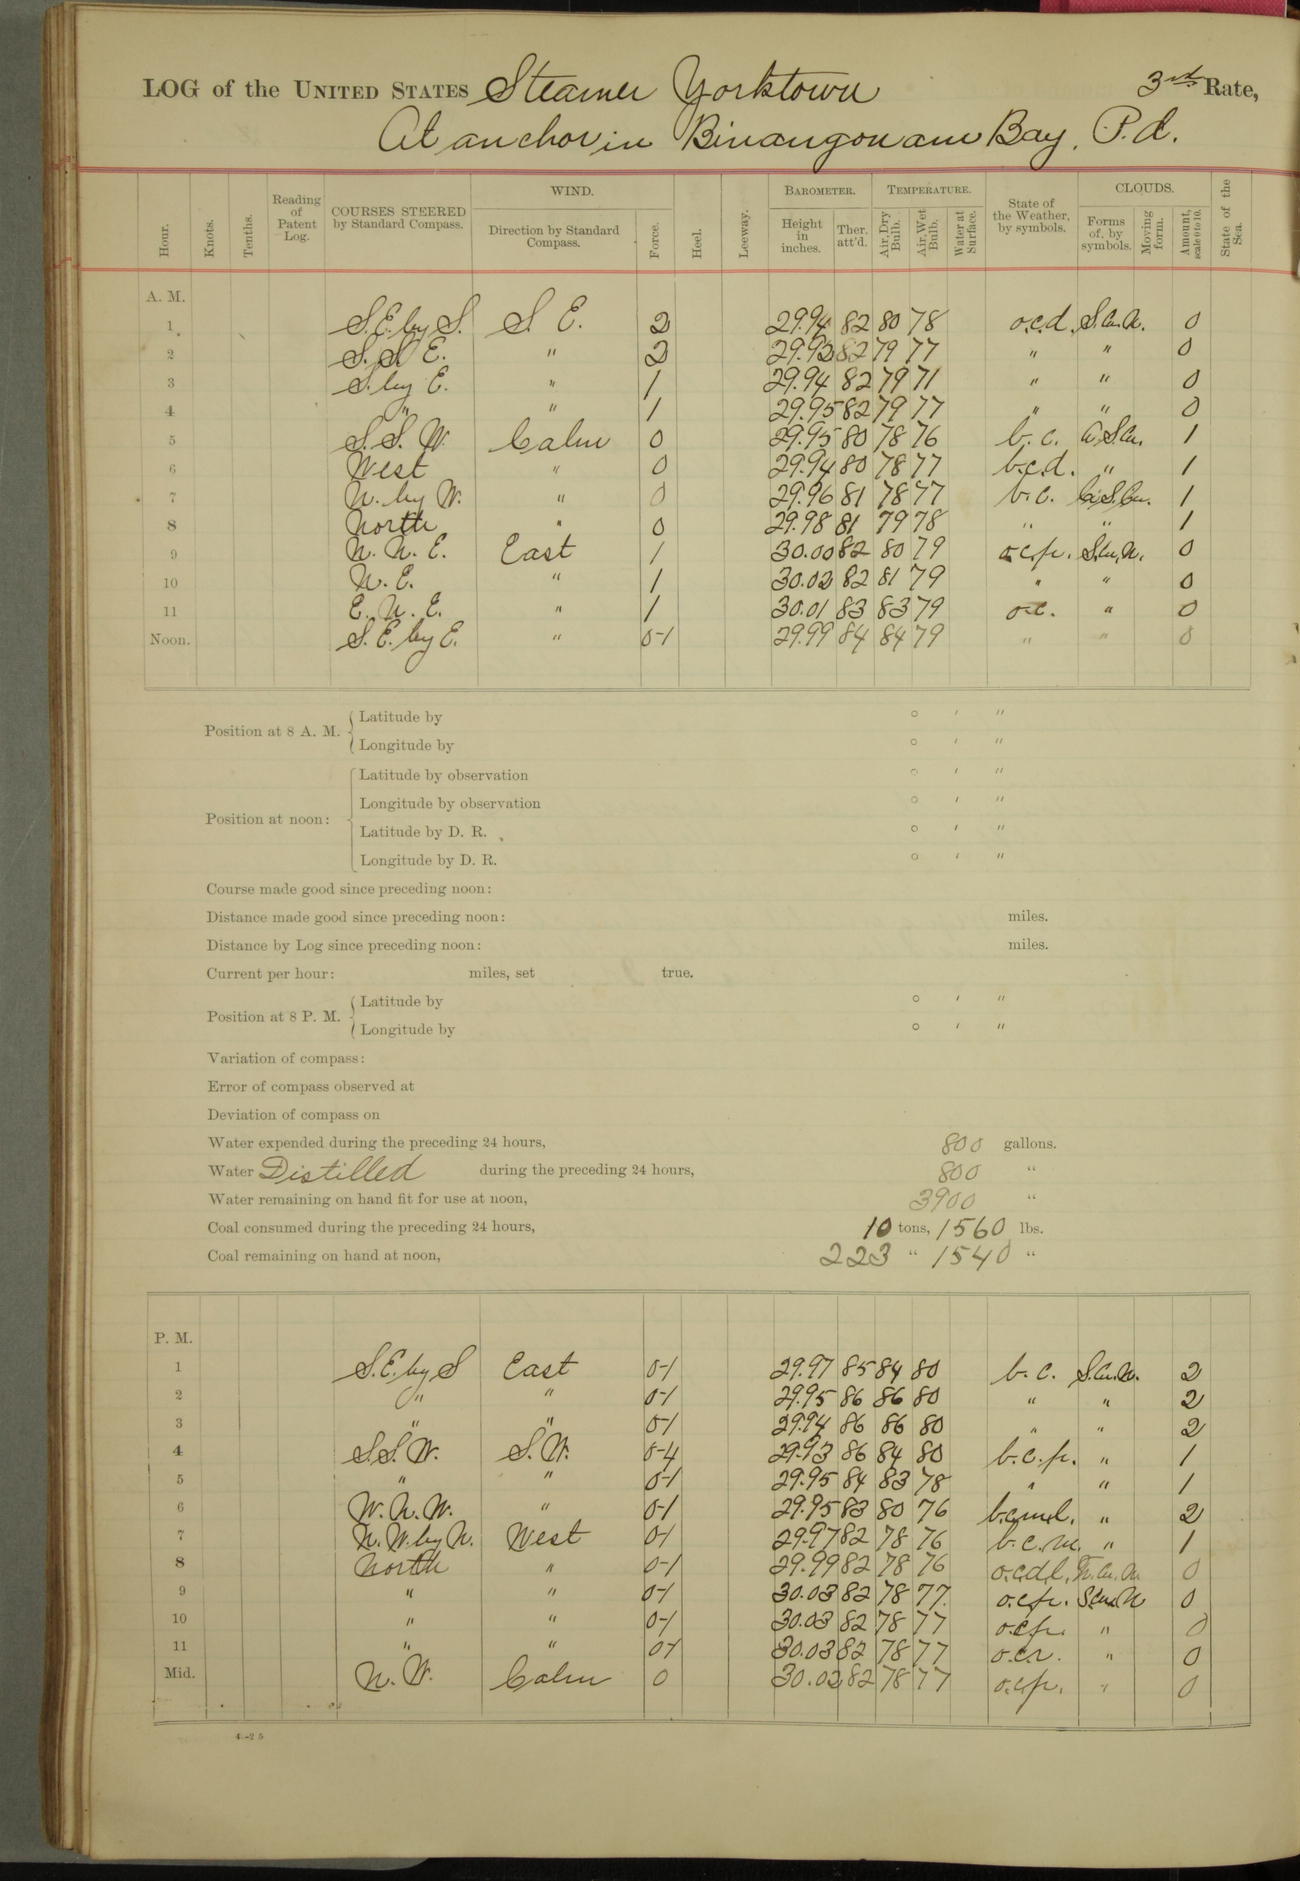 LOG of the UNITED STATES Steamer Yorktown 3rd Rate,
At anchor in Binangonam Bay, P. d.
Hour. Knots. Tenths. Reading of Patent Log. COURSES STEERED by Standard Compass. WIND. Direction by Standard Compass. Force. Heel. Leeway. BAROMETER. Height in inches. Ther. att'd. TEMPERATURE. Air, Dry Bulb. Air, Wet Bulb. Water at Surface. State of the Weather, by symbols. CLOUDS. Forms of, by symbols. Moving form. Amount, scale 0 to 10. State of the Sea.
A. M.
1 S.E. by S. S. E. 2 29.94 82 80 78 o.c.d. S.Cu.N. 0
2 S. S. E. " 2 29.93 82 79 77 " " 0
3 S. by E. " 1 29.94 82 79 71 " " 0
4 " " 1 29.95 82 79 77 " " 0
5 S. S. W. Calm 0 29.95 80 78 76 b. c. S.Cu. 1
6 West " 0 29.94 80 78 77 b.c.d. " 1
7 N. by W. " 0 29.96 81 78 77 b. c. Ci.S.Cu. 1
8 North " 0 29.98 81 79 78 " " 1
9 N. N. E. East 1 30.00 82 80 79 o.c.p. S.Cu.N. 0
10 N. E. " 1 30.02 82 81 79 " " 0
11 E. N. E. " 1 30.01 83 83 79 o.c. " 0
Noon. S. E. by E. " 0-1 29.99 84 84 79 " " 0
Position at 8 A. M. Latitude by ° ′ ″
Longitude by ° ′ ″
Position at noon: Latitude by observation ° ′ ″
Longitude by observation ° ′ ″
Latitude by D. R. ° ′ ″
Longitude by D. R. ° ′ ″
Course made good since preceding noon:
Distance made good since preceding noon: miles.
Distance by Log since preceding noon: miles.
Current per hour: miles, set true.
Position at 8 P. M. Latitude by ° ′ ″
Longitude by ° ′ ″
Variation of compass:
Error of compass observed at
Deviation of compass on
Water expended during the preceding 24 hours, 800 gallons.
Water Distilled during the preceding 24 hours, 800 "
Water remaining on hand fit for use at noon, 3900 "
Coal consumed during the preceding 24 hours, 10 tons, 1560 lbs.
Coal remaining on hand at noon, 223 " 1540 "
P. M.
1 S.E. by S East 0-1 29.97 85 84 80 b. c. S.Cu.N. 2
2 " " 0-1 29.95 86 86 80 " " 2
3 " " 0-1 29.94 86 86 80 " " 2
4 S.S.W. S. W. 0-4 29.93 86 84 80 b.c.p. " 1
5 " " 0-1 29.95 84 83 78 " " 1
6 W. N. W. " 0-1 29.95 83 80 76 b.c.m.l. " 2
7 N. W. by N. West 0-1 29.97 82 78 76 b.c.m. " 1
8 North " 0-1 29.99 82 78 76 o.c.d.l. 0
9 " " 0-1 30.03 82 78 77 o.c.p. S.Cu.N 0
10 " " 0-1 30.03 82 78 77 o.c.p. " 0
11 " " 0-1 30.03 82 78 77 o.c.r. " 0
Mid. N. W. Calm 0 30.02 82 78 77 o.c.p. " 0
4-25